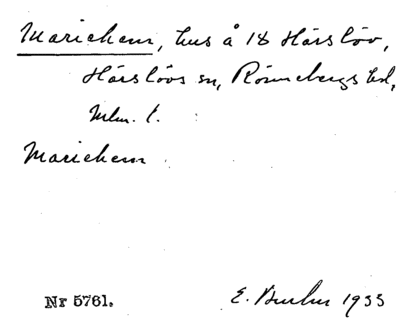 Mariehem, hus å 18 Härslöv,
Härslövs sn, Rönnebergs hd,
Mlm. l.
Mariehem
Nr 5761. E. 1933